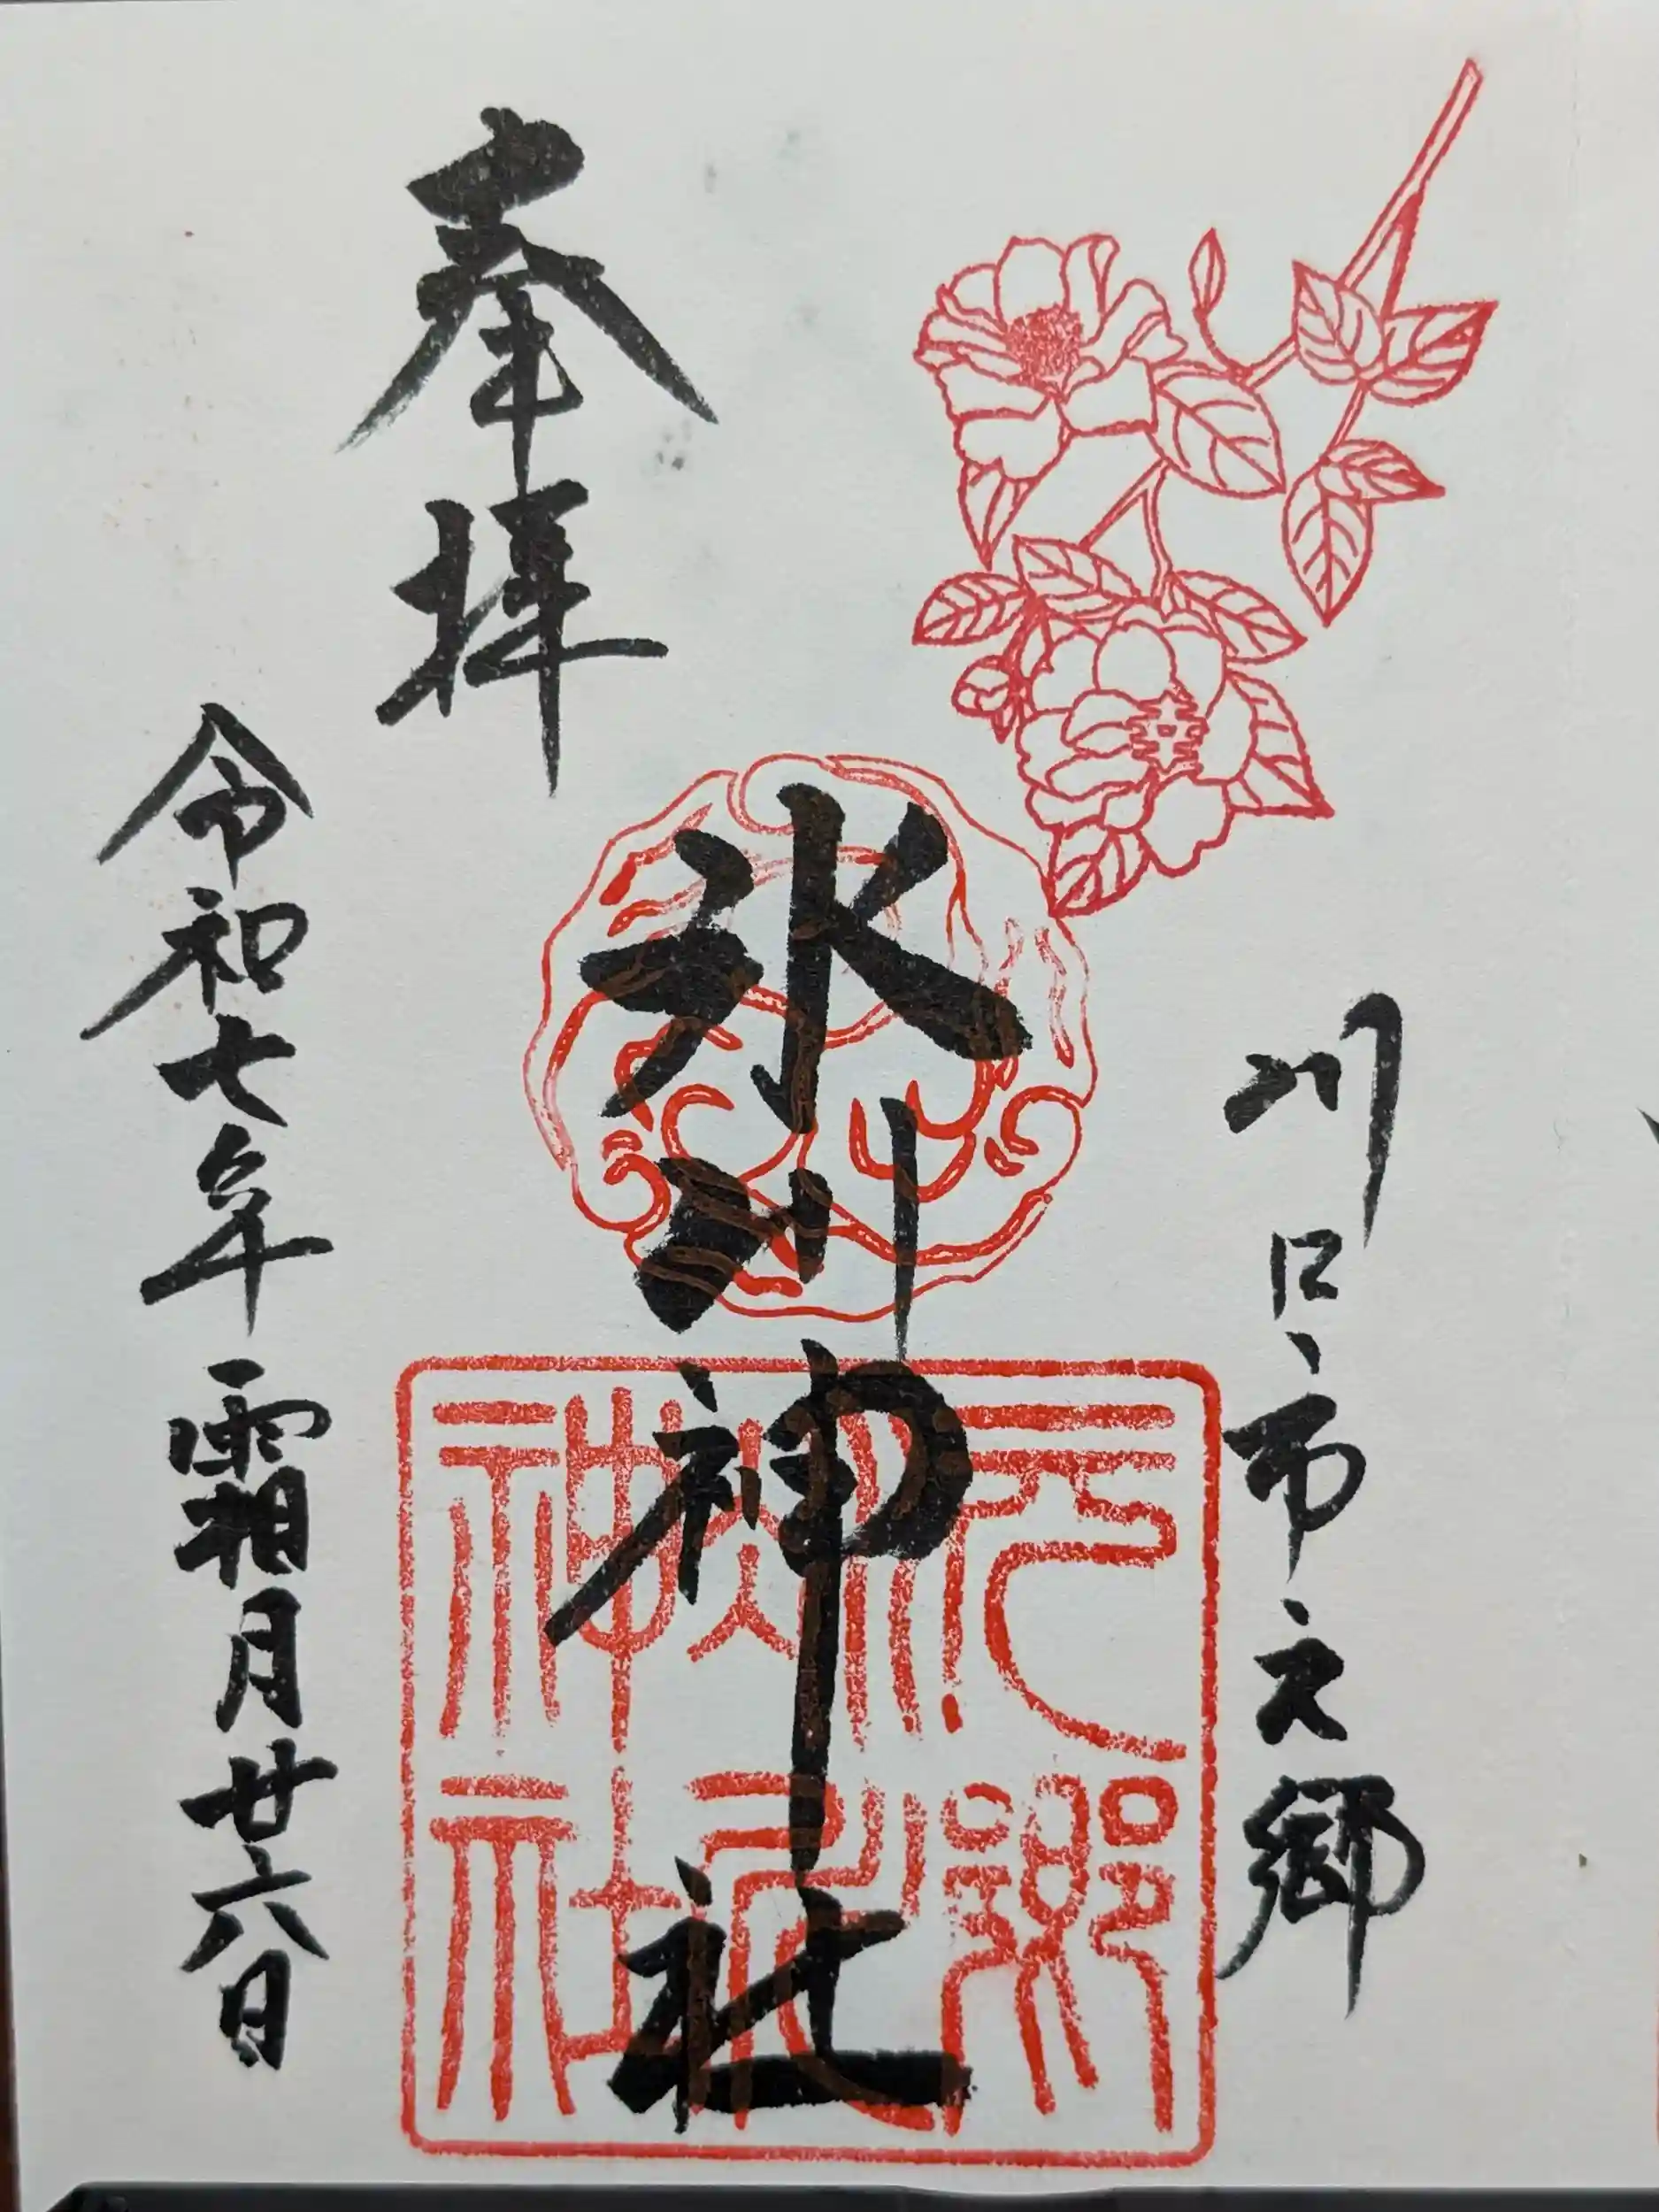 川口市元郷
氷川神社
奉拝
令和七年霜月廿六日
元郷
氷川
神社